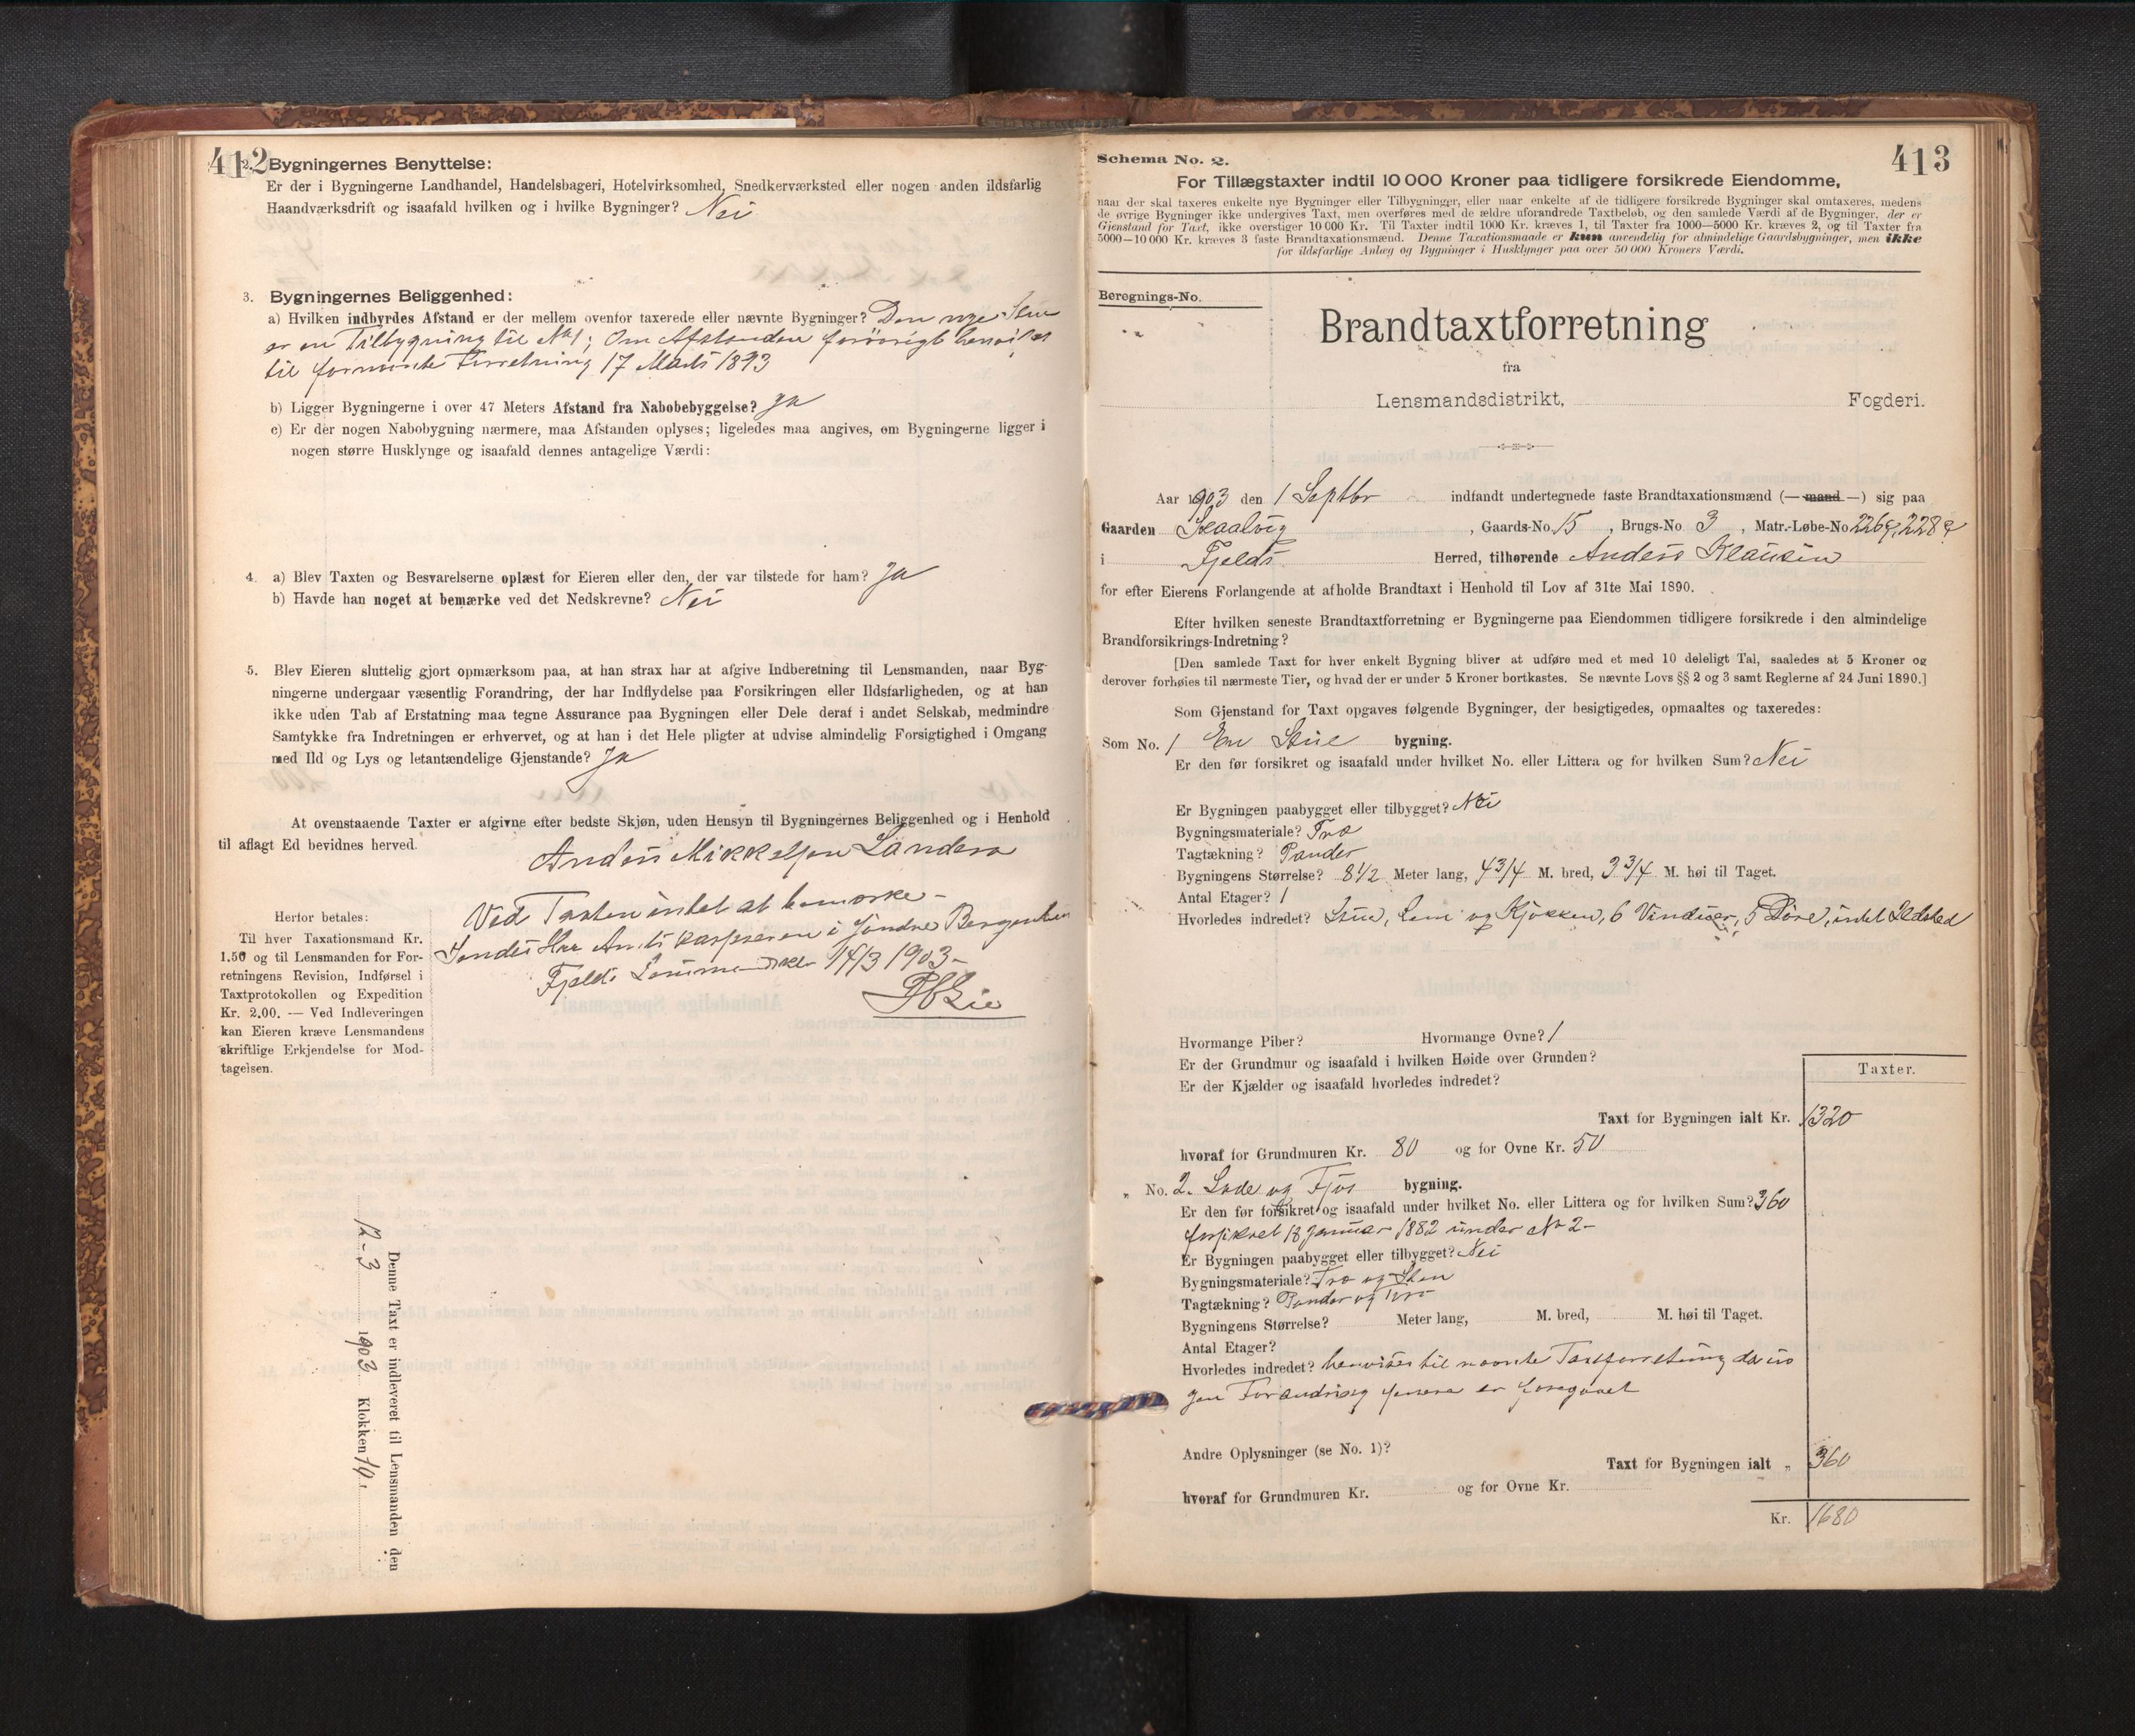 412
2. Bygningernes Benyttelse:
Er der i Bygningerne Landhandel, Handelsbageri, Hotelvirksomhed, Snedkerværksted eller nogen anden ildsfarlig
Haandværksdrift og isaafald hvilken og i hvilke Bygninger? Nei
3. Bygningernes Beliggenhed:
a) Hvilken indbyrdes Afstand er der mellem ovenfor taxerede eller nævnte Bygninger? Den nye Stue
er en Tilbygning til No 1; Om Afstanden forövrigt henvises
til formente Forretning 17 Marts 1893
b) Ligger Bygningerne i over 47 Meters Afstand fra Nabobebyggelse? Ja
c) Er der nogen Nabobygning nærmere, maa Afstanden oplyses; ligeledes maa angives, om Bygningerne ligger i
nogen større Husklynge og isaafald dennes antagelige Værdi:
4. a) Blev Taxten og Besvarelserne oplæst for Eieren eller den, der var tilstede for ham? Ja
b) Havde han noget at bemærke ved det Nedskrevne? Nei
5. Blev Eieren sluttelig gjort opmærksom paa, at han strax har at afgive Indberetning til Lensmanden, naar Byg-
ningerne undergaar væsentlig Forandring, der har Indflydelse paa Forsikringen eller Ildsfarligheden, og at han
ikke uden Tab af Erstatning maa tegne Assurance paa Bygningen eller Dele deraf i andet Selskab, medmindre
Samtykke fra Indretningen er erhvervet, og at han i det Hele pligter at udvise almindelig Forsigtighed i Omgang
med Ild og Lys og letantændelige Gjenstande? Ja
At ovenstaaende Taxter er afgivne efter bedste Skjøn, uden Hensyn til Bygningernes Beliggenhed og i Henhold
til aflagt Ed bevidnes herved.
Anders Mikkelsen Landero
Ved Taxten intet at bemærke -
Sendes Hr Amtskasserer i Söndre Bergenhus
Fjelds Lensmandskt 14/3 1903 -
Herfor betales:
Til hver Taxationsmand Kr.
1.50 og til Lensmanden for For-
retningens Revision, Indførsel i
Taxtprotokollen og Expedition
Kr. 2.00. — Ved Indleveringen
kan Eieren kræve Lensmandens
skriftlige Erkjendelse for Mod-
tagelsen.
Denne Taxt er indleveret til Lensmanden den
12-3 1903 Klokken 10
413
Schema No. 2.
For Tillægstaxter indtil 10 000 Kroner paa tidligere forsikrede Eiendomme,
naar der skal taxeres enkelte nye Bygninger eller Tilbygninger, eller naar enkelte af de tidligere forsikrede Bygninger skal omtaxeres, medens
de øvrige Bygninger ikke undergives Taxt, men overføres med de ældre uforandrede Taxtbeløb, og den samlede Værdi af de Bygninger, der er
Gjenstand for Taxt, ikke overstiger 10 000 Kr. Til Taxter indtil 1000 Kr. kræves 1, til Taxter fra 1000—5000 Kr. kræves 2, og til Taxter fra
5000—10 000 Kr. kræves 3 faste Brandtaxationsmænd. Denne Taxationsmaade er kun anvendelig for almindelige Gaardsbygninger, men ikke
for ildsfarlige Anlæg og Bygninger i Husklynger paa over 50 000 Kroners Værdi.
Beregnings-No.
Brandtaxtforretning
fra
Lensmandsdistrikt, Fogderi.
Aar 1903 den 1 Septbr indfandt undertegnede faste Brandtaxationsmænd (— mand —) sig paa
Gaarden Skaalvig, Gaards-No. 15, Brugs-No 3, Matr.-Løbe-No 226c, 228c
i Fjelds Herred, tilhørende Anders Klausen
for efter Eierens Forlangende at afholde Brandtaxt i Henhold til Lov af 31te Mai 1890.
Efter hvilken seneste Brandtaxtforretning er Bygningerne paa Eiendommen tidligere forsikrede i den almindelige
Brandforsikrings-Indretning?
[Den samlede Taxt for hver enkelt Bygning bliver at udføre med et med 10 deleligt Tal, saaledes at 5 Kroner og
derover forhøies til nærmeste Tier, og hvad der er under 5 Kroner bortkastes. Se nævnte Lovs §§ 2 og 3 samt Reglerne af 24 Juni 1890.]
Som Gjenstand for Taxt opgaves følgende Bygninger, der besigtigedes, opmaaltes og taxeredes:
Som No. 1 En Stue bygning.
Er den før forsikret og isaafald under hvilket No. eller Littera og for hvilken Sum? Nei
Er Bygningen paabygget eller tilbygget? Nei
Bygningsmateriale? Træ
Tagtækning? Pander
Bygningens Størrelse? 8 1/2 Meter lang, 4 3/4 M. bred, 3 3/4 M. høi til Taget.
Antal Etager? 1
Hvorledes indredet? Stue, Lem og Kjøkken, 6 Vinduer, 5 Döre, intet Ildsted
Hvormange Piber? Hvormange Ovne? 1
Er der Grundmur og isaafald i hvilken Høide over Grunden?
Er der Kjælder og isaafald hvorledes indredet?
Taxter.
Taxt for Bygningen ialt Kr. 1320
hvoraf for Grundmuren Kr. 80 og for Ovne Kr. 50
" No. 2. Lade og Fjøs bygning.
Er den før forsikret og isaafald under hvilket No. eller Littera og for hvilken Sum? 360
forsikret 18 Januar 1882 under No 2 -
Er Bygningen paabygget eller tilbygget? Nei
Bygningsmateriale? Træ og Sten
Tagtækning? Pander og
Bygningens Størrelse? Meter lang, M. bred, M. høi til Taget.
Antal Etager?
Hvorledes indredet? henvises til nævnte Taxtforretning da in
gen Forandring senere er foregaaet
Andre Oplysninger (se No. 1)?
Taxt for Bygningen ialt " 360
hvoraf for Grundmuren Kr. og for Ovne Kr.
Kr. 1680